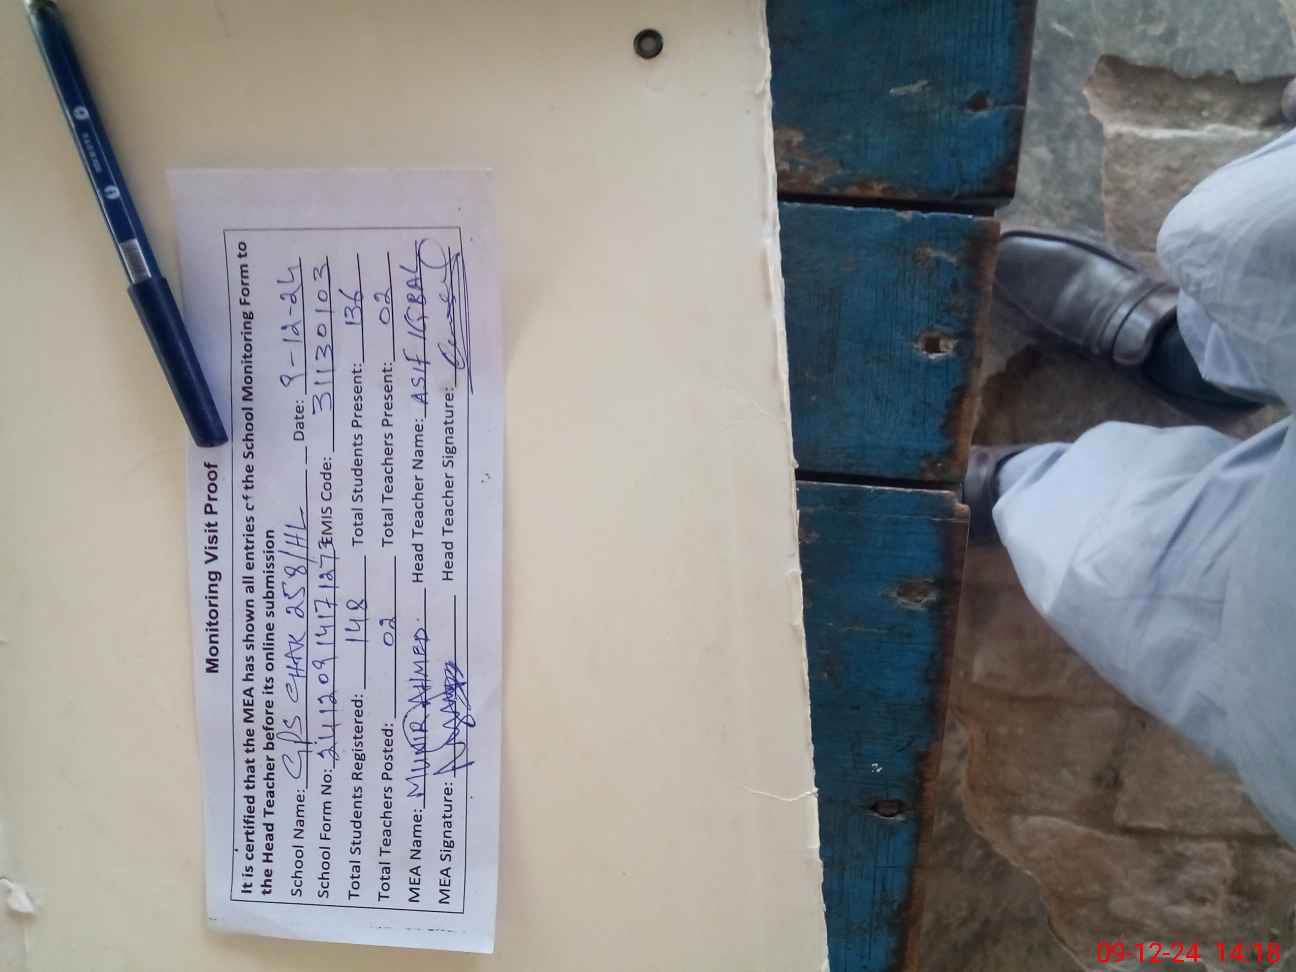 Monitoring Visit Proof
It is certified that the MEA has shown all entries of the School Monitoring Form to
the Head Teacher before its online submission
School Name: GPS CHAK 258/HL Date: 9-12-24
School Form No: 2412091417127 EMIS Code: 31130103
Total Students Registered: 148 Total Students Present: 136
Total Teachers Posted: 02 Total Teachers Present: 02
MEA Name: MUNIR AHMED. Head Teacher Name: ASIF IQBAL
MEA Signature: Head Teacher Signature:
09-12-24 14:18